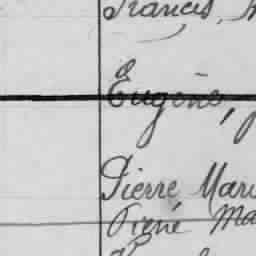 Francis,
Eugène,
Pierre, Mari
René Ma